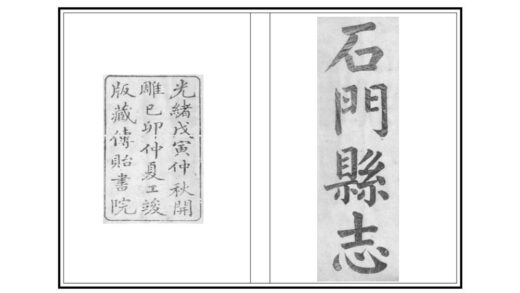 石門縣志
光緒戊寅仲秋開
雕已卯仲夏工竣
版藏傳貽書院